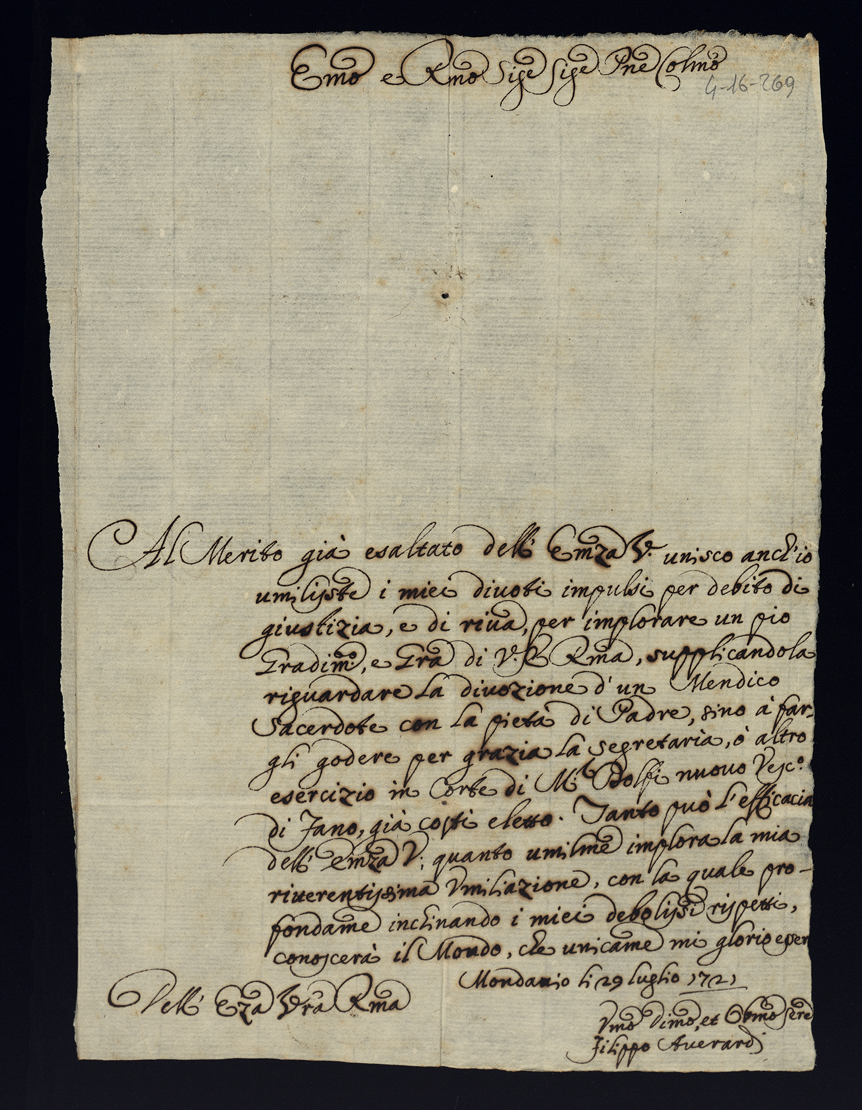 Emo e Rmo Sige Sige Pne Colmo
4-16-269
Al Merito già esaltato dell' Emza V. unisco anch'io
umilisste i miei divoti impulsi per debito di
giustizia, e di riva, per implorare un pio
Gradimo, e Gra di V. E Rma, supplicandola
riguardare la divozione d'un Mendico
Sacerdote con la pietà di Padre, sino à far-
gli godere per grazia la segretaria, ò altro
esercizio in Corte di Mr Dolfi nuovo Vesco.
di Fano, già costi eletto. Tanto può l'efficacia
dell' Emza V; quanto umilme implora la mia
riverentissima Vmiliazione, con la quale pro-
fondame inclinando i miei debolissi rispetti,
conoscerà il Mondo, che unicame mi glorio esser
Mondavio li 29 luglio 1721
Dell' Eza Vra Rma
Vmo Dimo, et Obmo sere
Filippo Averardi